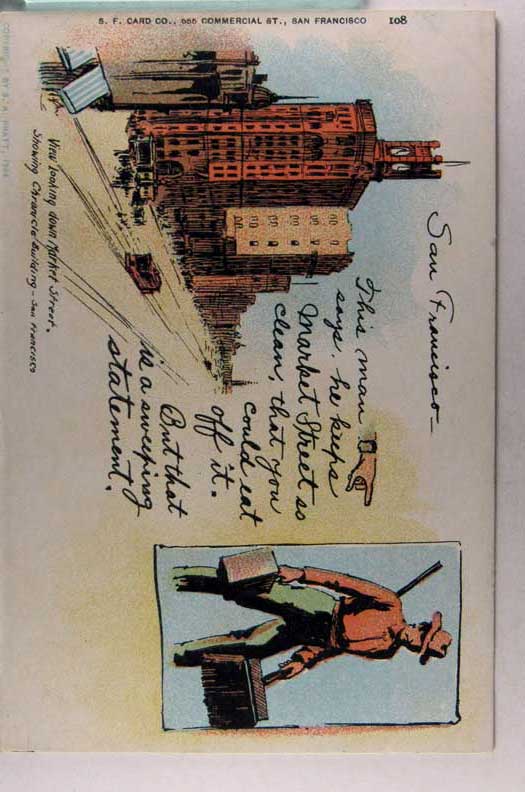 S. F. CARD CO., 666 COMMERCIAL ST., SAN FRANCISCO 108
San Francisco—
This man
says, he keeps
Market Street so
clean, that you
could eat
off it.
But that
is a sweeping
statement.
View looking down Market Street.
Showing Chronicle Building - San Francisco